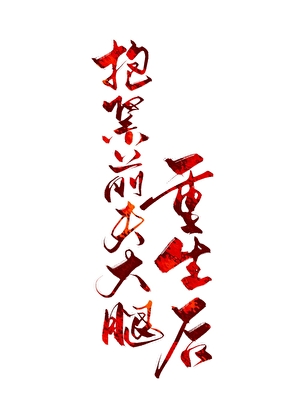 重生后
抱紧前夫大腿